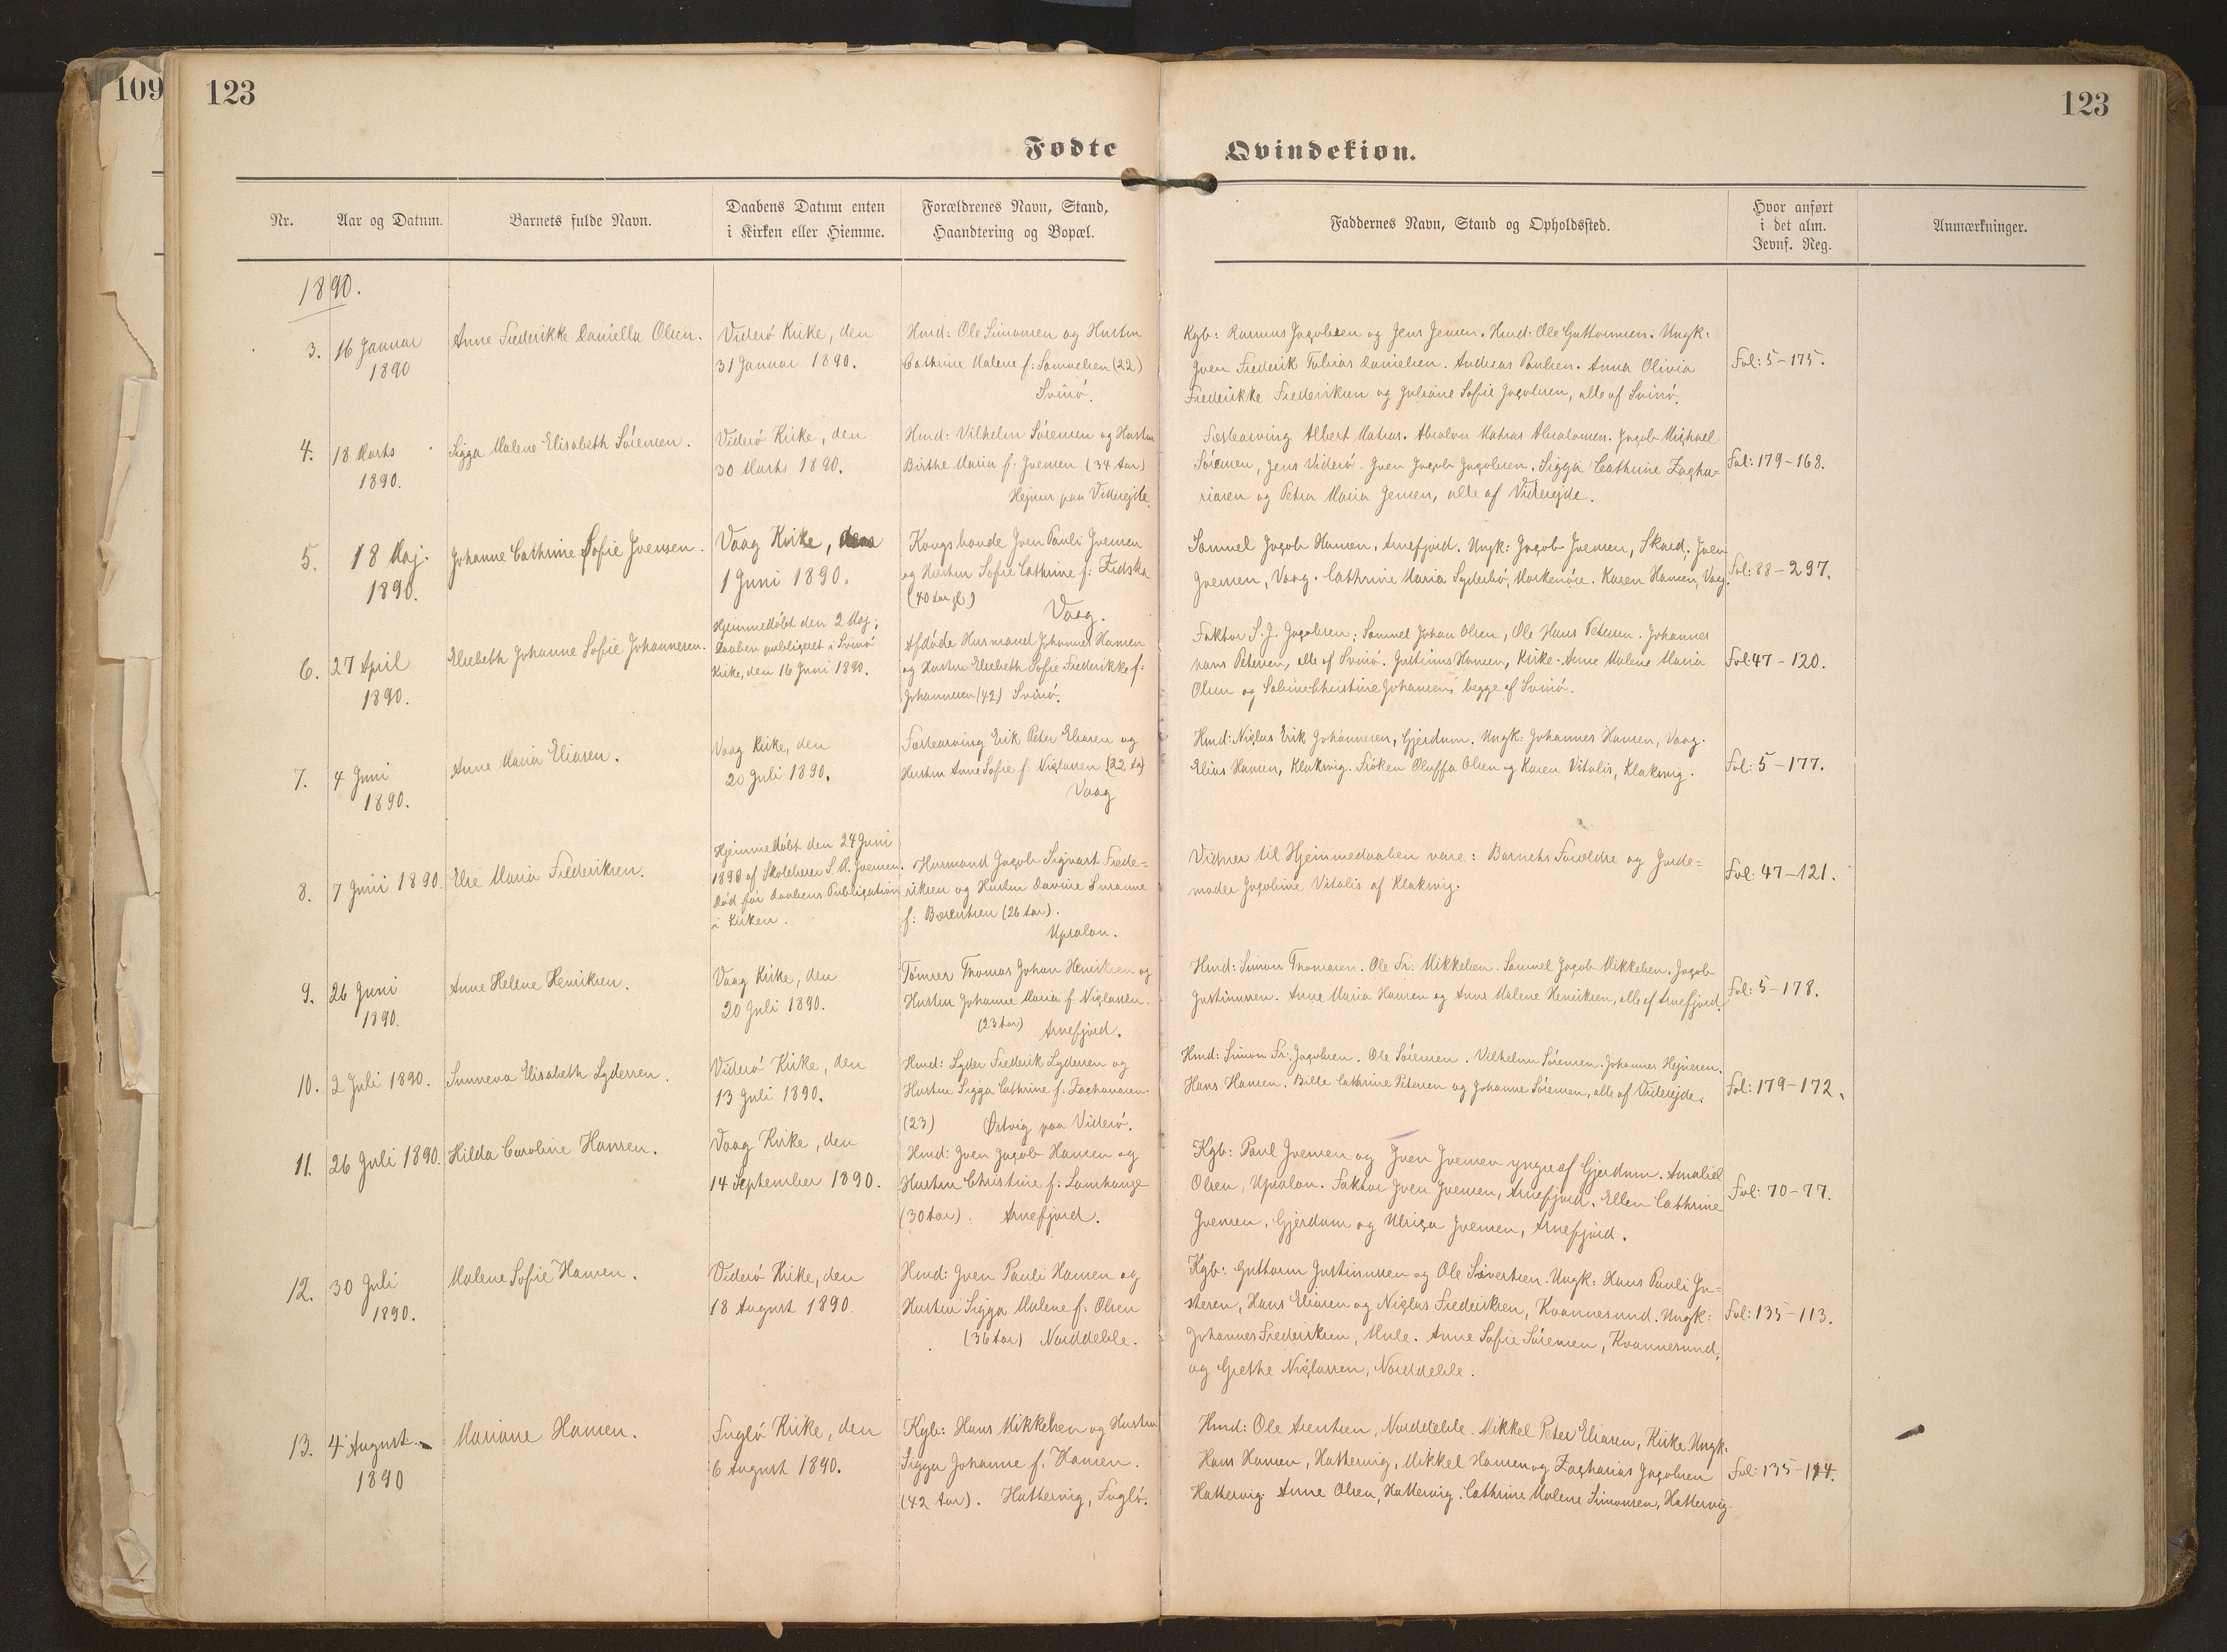 109
123
123
Fødte
Qvindekiøn.
Nr.
Aar og Datum.
Barnets fulde Navn.
Daabens Datum enten
i Kirken eller Hiemme.
Forældrenes Navn, Stand,
Haandtering og Bopæl.
Faddernes Navn, Stand og Opholdssted.
Hvor anført
i det alm.
Jevnf. Reg.
Anmærkninger.
1890.
3.
16 Januar
1890
Anne Frederikke Daniella Olsen.
Viderö Kirke, den
31 Januar 1890.
Hmd: Ole Simonsen og Hustru
Cathrine Malene f: Samuelsen (22)
Svinö.
Kgb: Rasmus Jacobsen og Jens Jensen. Hmd: Ole Guttormsen. Ungk:
Jven Frederik Tobias Danielsen. Andreas Poulsen. Anna Olivia
Frederikke Frederiksen og Juliane Sofie Jacobsen, alle af Svinö.
Fol: 5-175.
4.
18 Marts
1890.
Sigga Malene Elisabeth Sörensen.
Viderö Kirke, den
30 Marts 1890.
Hmd: Vilhelm Sörensen og Hustru
Birthe Maria f: Joensen (34 Aar)
Hejnum paa Viderejde.
Fæstearving Albert Matras. Absalon Matras Absalonsen. Jacob Michael
Sörensen, Jens Viderö. Jven Jacob Jacobsen. Sigga Cathrine Zacha=
riasen og Petra Maria Jensen, alle af Viderejde.
Fol: 179-168.
5.
18 Maj.
1890.
Johanne Cathrine Sofie Jvensen.
Vaag Kirke, den
1 Juni 1890.
Kongsbonde Jven Pauli Jvensen
og Hustru Sofie Cathrine f: Zidska
(40 Aar gl)
Vaag.
Samuel Jacob Hansen, Arnefjord. Ungk: Jacob Jvensen, Skard. Jven
Jvensen, Vaag. Cathrine Maria Syderbö, Morkenöre. Karen Hansen, Vaag.
Fol: 88-297.
6.
27 April
1890.
Elsebeth Johanne Sofie Johannesen.
Hjemmedöbt den 2 Maj;
Daaben publiceret i Svinö
Kirke, den 16 Juni 1890.
Afdöde Husmand Johannes Hansen
og Hustru Elsebeth Sofie Frederikke f:
Johannesen (42) Svinö.
Faktor S. J. Jacobsen; Samuel Johan Olsen, Ole Hans Petersen. Johannes
Hans Petersen, alle af Svinö. Justinus Hansen, Kirke. Anne Malene Maria
Olsen og Sabine Christine Johansen, begge af Svinö.
Fol: 47-120.
7.
4 Juni
1890.
Anne Maria Eliasen.
Vaag Kirke, den
20 Juli 1890.
Fæstearving Erik Peter Eliasen og
Hustru Anne Sofie f: Niclassen (22 Aar)
Vaag
Hmd: Niclas Erik Johannesen, Gjerdum. Ungk: Johannes Hansen, Vaag.
Elias Hansen, Klaksvig. Fröken Oluffa Olsen og Karen Vitalis, Klaksvig.
Fol: 5-177.
8.
7 Juni 1890.
Else Maria Frederiksen.
Hjemmedöbt den 24 Juni
1890 af Skolelærer S. M. Joensen.
Död för Daabens Publication
i Kirken.
Husmand Jacob Sigvart Frede=
riksen og Hustru Davine Susanne
f: Bærentsen (26 Aar).
Upsalon.
Vidner til Hjemmedaaben vare: Barnets Forældre og Jorde=
moder Jacobine Vitalis af Klaksvig.
Fol: 47-121.
9.
26 Juni
1890.
Anne Helene Henriksen.
Vaag Kirke, den
20 Juli 1890.
Tömrer Thomas Johan Henriksen og
Hustru Johanne Maria f. Niclassen.
(23 Aar) Arnefjord.
Hmd: Simon Thomasen. Ole Fr: Mikkelsen. Samuel Jacob Mikkelsen. Jacob
Justinussen. Anne Maria Hansen og Anne Malene Henriksen, alle af Arnefjord.
Fol: 5-178.
10.
2 Juli 1890.
Sunneva Elisabeth Lydersen.
Viderö Kirke, den
13 Juli 1890.
Hmd: Lyder Frederik Lydersen og
Hustru Sigga Cathrine f: Zachariasen.
(23) Östvig paa Viderö.
Hmd: Simon Fr: Jacobsen. Ole Sörensen. Vilhelm Sörensen. Johannes Hejnesen.
Hans Hansen. Bille Cathrine Petersen og Johanne Sörensen, alle af Viderejde.
Fol: 179-172.
11.
26 Juli 1890.
Hilda Caroline Hansen.
Vaag Kirke, den
14 September 1890.
Hmd: Jven Jacob Hansen og
Hustru Christine f: Lamhauge
(30 Aar). Arnefjord.
Kgb: Paul Jvensen og Jven Jvensen yngre af Gjerdum. Amaliel
Olsen, Upsalon. Faktor Jven Jvensen, Arnefjord. Ellen Cathrine
Jvensen, Gjerdum og Ulrica Jvensen, Arnefjord.
Fol: 70-77.
12.
30 Juli
1890.
Malene Sofie Hansen.
Viderö Kirke, den
18 August 1890.
Hmd: Jven Pauli Hansen og
Hustru Sigga Malene f. Olsen
(36 Aar) Norddeble.
Kgb: Guttorm Justinussen og Ole Sivertsen. Ungk: Hans Pauli Ju=
stesen, Hans Eliasen og Niclas Frederiksen, Kvannesund. Ungk:
Johannes Frederiksen, Mule. Anne Sofie Sörensen, Kvannesund,
og Grethe Niclassen, Norddeble.
Fol: 135-113.
13.
4 August
1890
Mariane Hansen.
Fuglö Kirke, den
6 August 1890.
Kgb: Hans Mikkelsen og Hustru
Sigga Johanne f. Hansen.
(42 Aar). Hattervig, Fuglö.
Hmd: Ole Arentsen, Norddeble. Mikkel Peter Eliasen, Kirke. Ungk.
Hans Hansen, Hattervig, Mikkel Hansen og Zacharias Jacobsen
Hattervig. Anne Olsen, Hattervig. Cathrine Malene Simonsen, Hattervig.
Fol: 135-114.